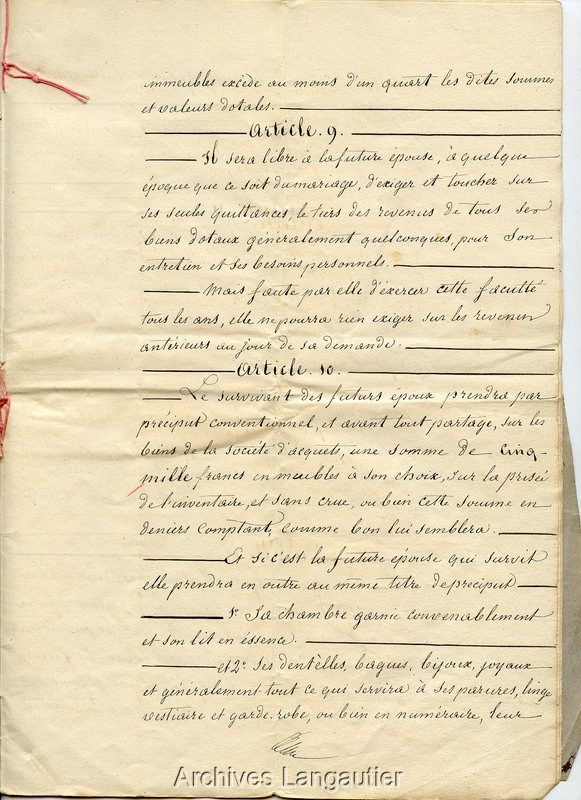 immeubles excède au moins d'un quart les dites sommes
et valeurs dotales.
Article. 9.
Il sera libre à la future épouse, à quelque
époque que ce soit du mariage, d'exiger et toucher sur
ses seules quittances, le tiers des revenus de tous ses
biens dotaux généralement quelconques, pour son
entretien et ses besoins personnels.
Mais faute par elle d'éxercer cette faculté
tous les ans, elle ne pourra rien exiger sur les revenus
antérieurs au jour de sa demande.
Article. 10.
Le survivant des futurs époux prendra par
préciput conventionnel, et avant tout partage, sur les
biens de la société d'acquets, une somme de cinq-
mille francs en meubles à son choix, sur la prisée
de l'inventaire, et sans crue, ou bien cette somme en
deniers comptant, comme bon lui semblera.
Et si c'est la future épouse qui survit
elle prendra en outre au même titre de préciput
1° Sa chambre garnie convenablement
et son lit en éssence.
et 2° Ses dentèlles, bagues, bijoux, joyaux
et généralement tout ce qui servira à ses parures, linge
vestiaire et garde-robe, ou bien en numéraire, leur
Archives Langautier